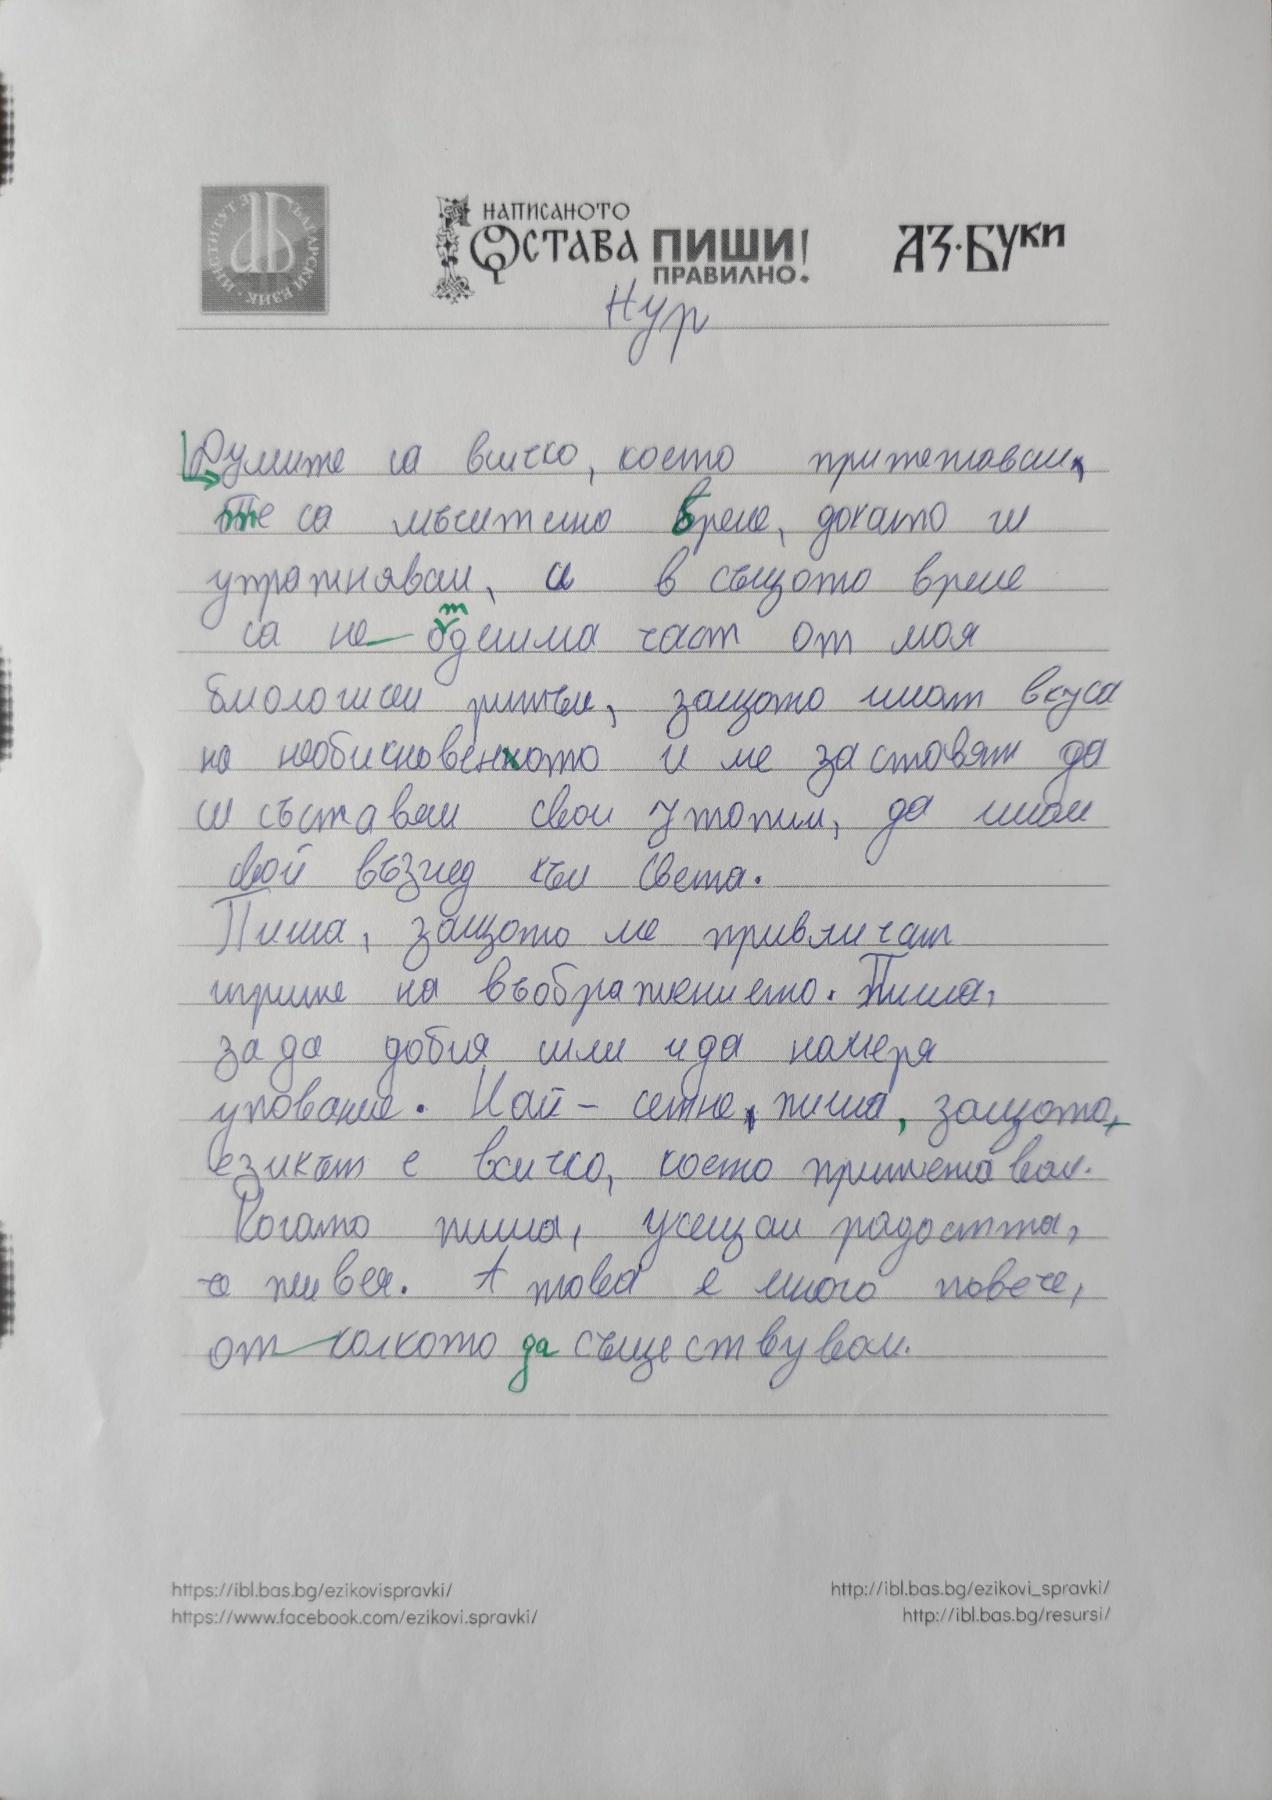 ИНСТИТУТ ЗА БЪЛГАРСКИ ЕЗИК
НАПИСАНОТО
ОСТАВА ПИШИ!
ПРАВИЛНО.
АЗ·БУКИ
Нур
Думите са всичко, което притежавам,
те са мъчително бреме, докато ги
упражнявам, а в същото време
са не отделима част от моя
биологичен ритъм, защото имат вкуса
на необикновеното и ме заставят да
си съставям свои утопии, да имам
свой възглед към света.
Пиша, защото ме привличат
игрите на въображението. Пиша,
за да добия сили и да намеря
упование. Най - сетне, пиша, защото,
езикът е всичко, което притежавам.
Когато пиша, усещам радостта,
че живея. А това е много повече,
от колкото да съществувам.
https://ibl.bas.bg/ezikovispravki/
http://ibl.bas.bg/ezikovi_spravki/
https://www.facebook.com/ezikovi.spravki/
http://ibl.bas.bg/resursi/